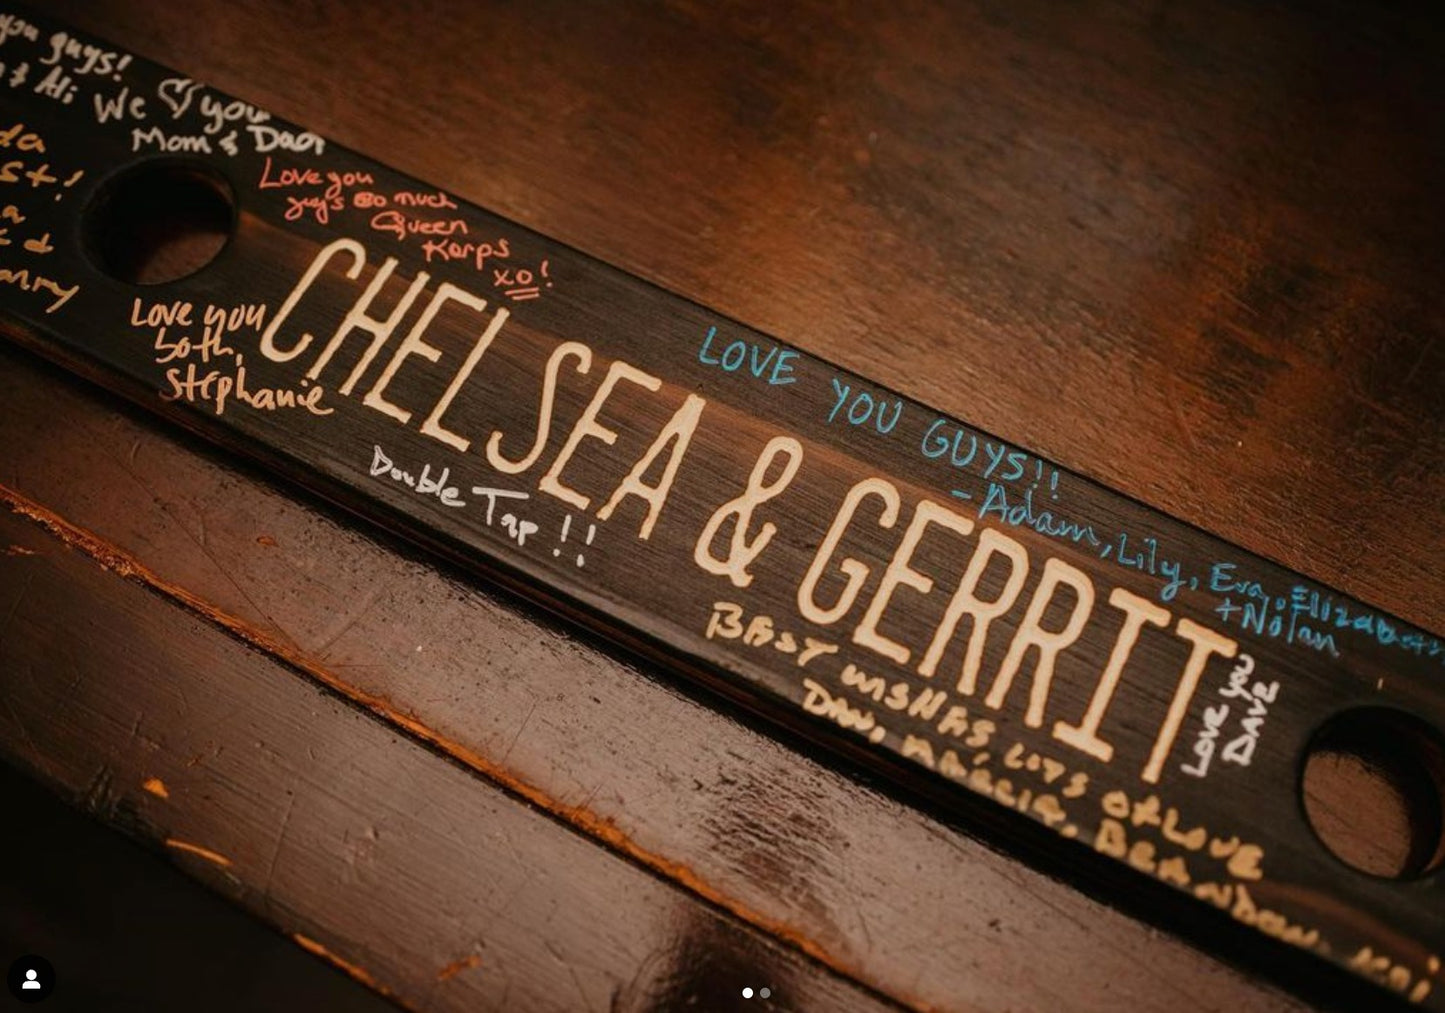 you guys!
& Ali
We ♡ you
Mom & Dad
da
st!
a
Love you
guys so much
Queen
Korps
xo!
Love you
both,
Stephanie
CHELSEA & GERRIT
Double Tap!!
LOVE YOU GUYS!!
- Adam, Lily, Eva, Elizabeth
+ Nolan
Love you
DAVE
BEST WISHES, LOTS OF LOVE
DAN, MARCIA, BRANDON,